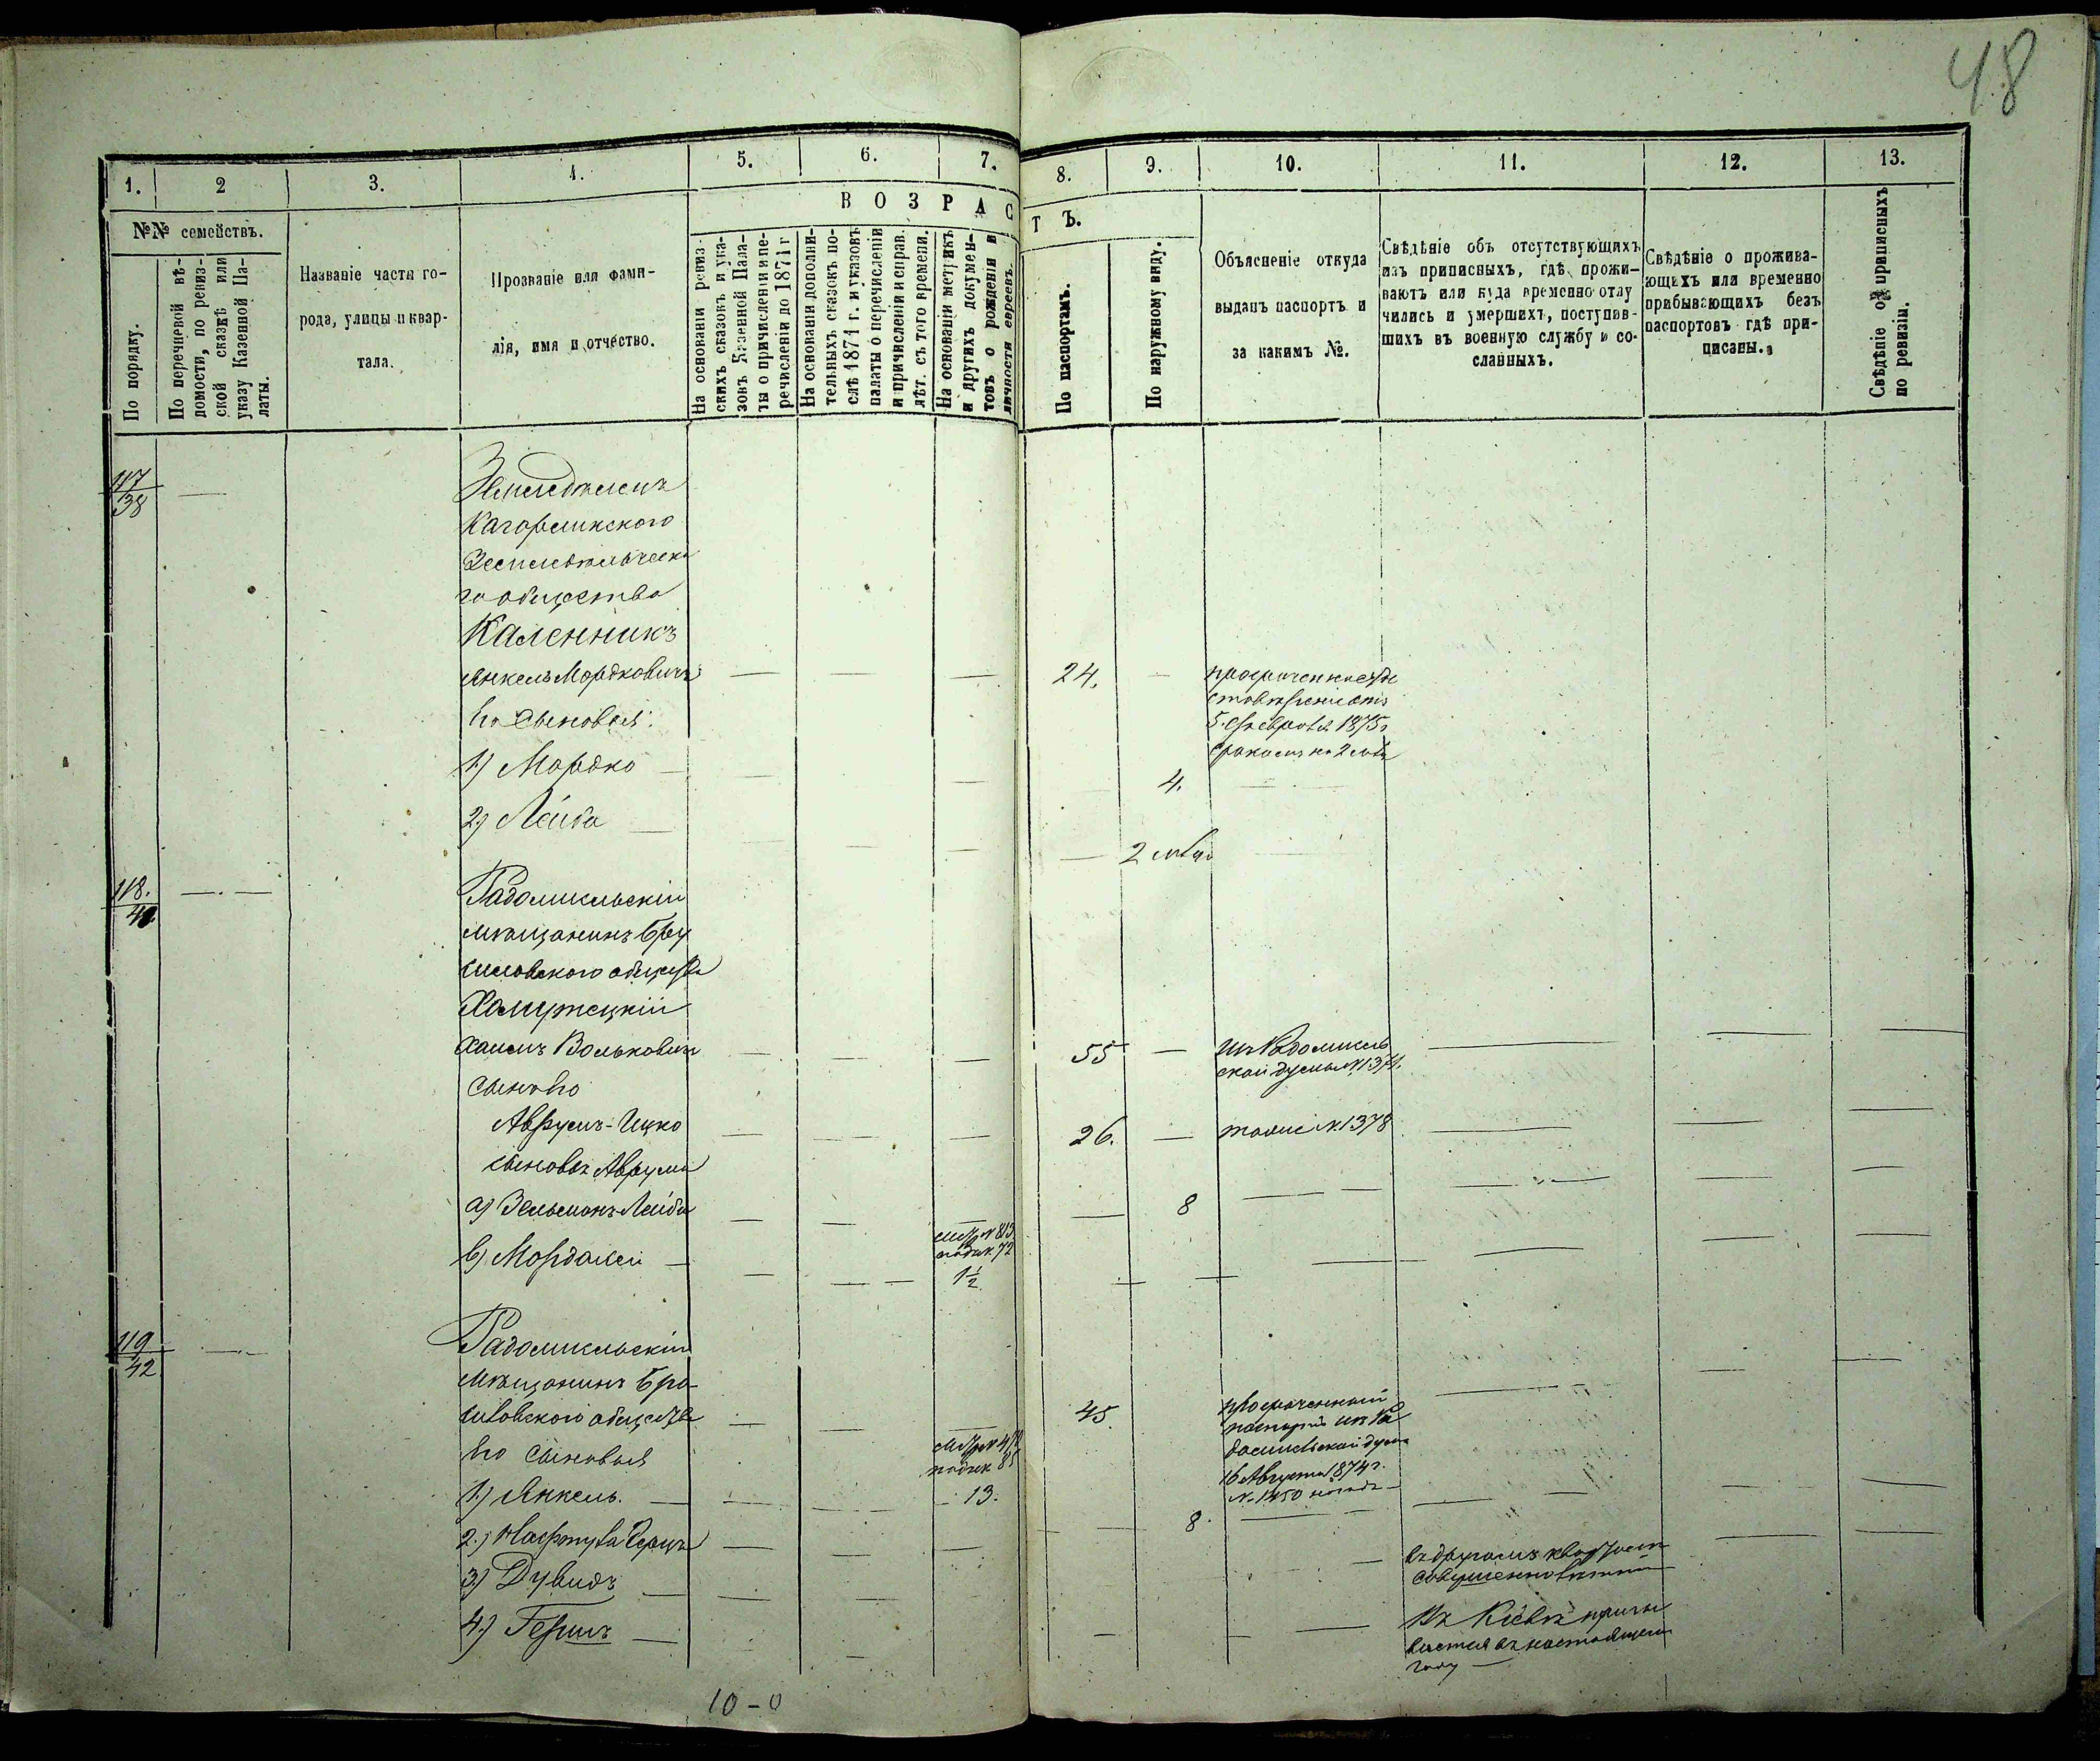 48
1. 2 3. 4. 5. 6. 7. 8. 9. 10. 11. 12. 13.
№№ семействъ.
По порядку.
По перечневой вѣ-
домости, по ревиз-
ской сказкѣ или
указу Казенной Па-
латы.
Названіе части го-
рода, улицы и квар-
тала.
Прозваніе или фами-
лія, имя и отчество.
ВОЗРАСТЪ.
На основаніи ревиз-
скихъ сказокъ и ука-
зовъ Казенной Пала-
ты о причисленіи и пе-
речисленіи до 1871 г
На основаніи дополни-
тельныхъ сказокъ по-
слѣ 1871 г. и указовъ
палаты о перечисленіи
и причисленіи и справ.
лѣт. съ того времени.
На основаніи метрикъ
и другихъ докумен-
товъ о рожденіи и
личности евреевъ.
По паспортамъ.
По наружному виду.
Объясненіе откуда
выданъ паспортъ и
за какимъ №.
Свѣдѣніе объ отсутствующихъ
изъ приписныхъ, гдѣ прожи-
ваютъ или куда временно отлу
чились и умершихъ, поступив-
шихъ въ военную службу и со-
сланныхъ.
Свѣдѣніе о прожива-
ющихъ или временно
прибывающихъ безъ
паспортовъ гдѣ при-
писаны.
Свѣдѣніе о приписныхъ
по ревизіи.
117
38
Земледѣлецъ
Кагарлинского
Земледѣльческа
го общества
Каленникъ
Янкель Мордковичъ 24.
Его сыновья:
5. Февраля 1875 г
срокомъ на 2 мѣс
1) Мордко 4.
2) Лейба 2 мѣс
118.
Радомысльскій
мѣщанинъ Бру
силовского общества
Хаимъ Вольковичъ 55 изъ Радомысль
ской думы № 1374.
Сынъ его
Аврумъ-Ицко 26. тоже № 1378
сыновья Аврума
а) Зельманъ-Лейба 8
в) Мордахей метр № 813
1½
119
42
Радомысльскій
мѣщанинъ Бру-
силовского общества 45 просроченный
паспортъ изъ Ра
домысльской думы
16 Августа 1874 г.
№ 1450
Его сыновья
1.) Янкель. 13.
2.) Нафтула Герцъ 8.
3) Дувидъ въ другомъ
4.) Гершъ Въ Кіевѣ призы
вается въ настоящемъ
году
10-0